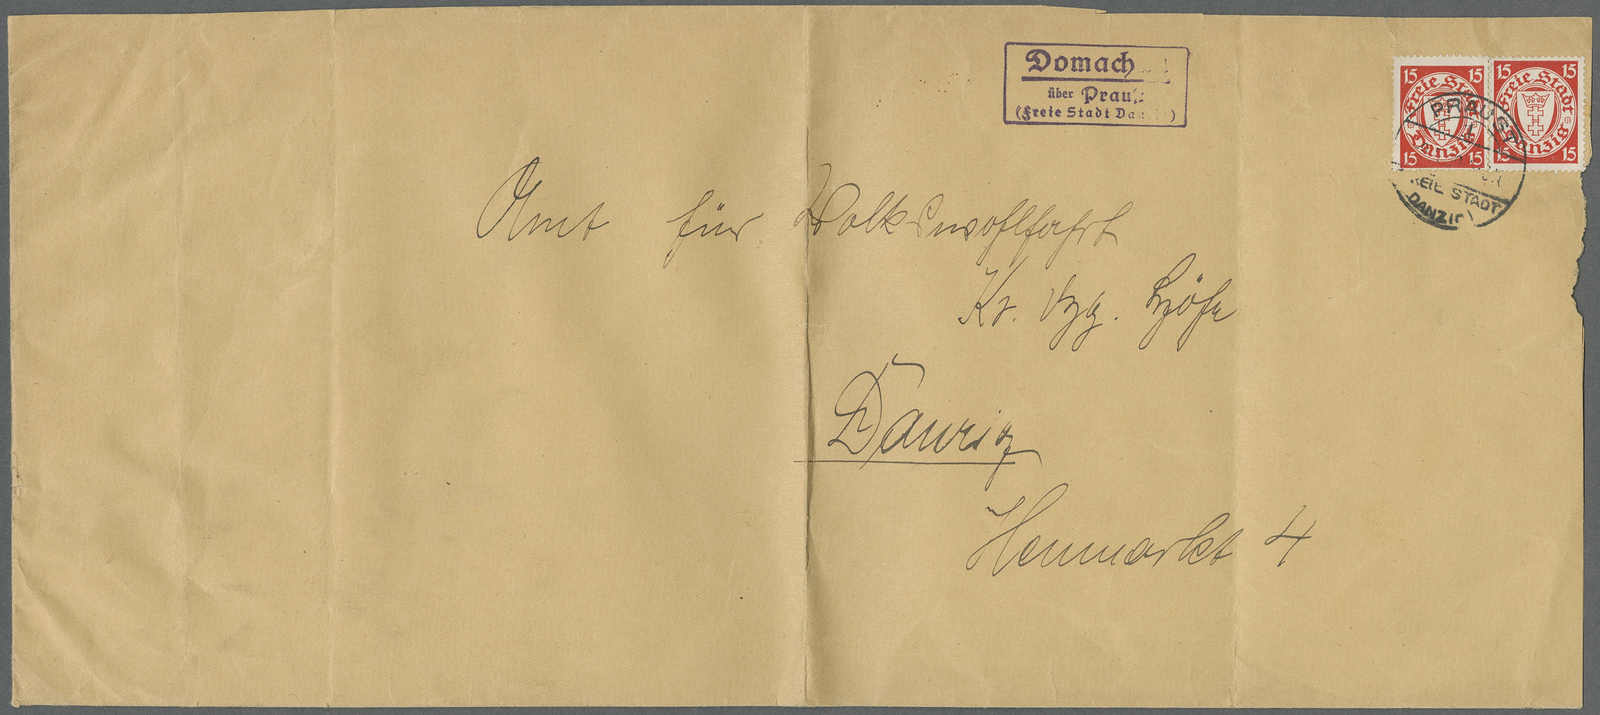 Domach
über Praust
(Freie Stadt Danzig)
15 15
Freie Stadt
Danzig
15 15
15 15
Freie Stadt
Danzig
15 15
PRAUST
FREIE STADT
DANZIG
Amt für Volkswohlfahrt
Kr. Vzg. Höhe
Danzig
Heumarkt 4